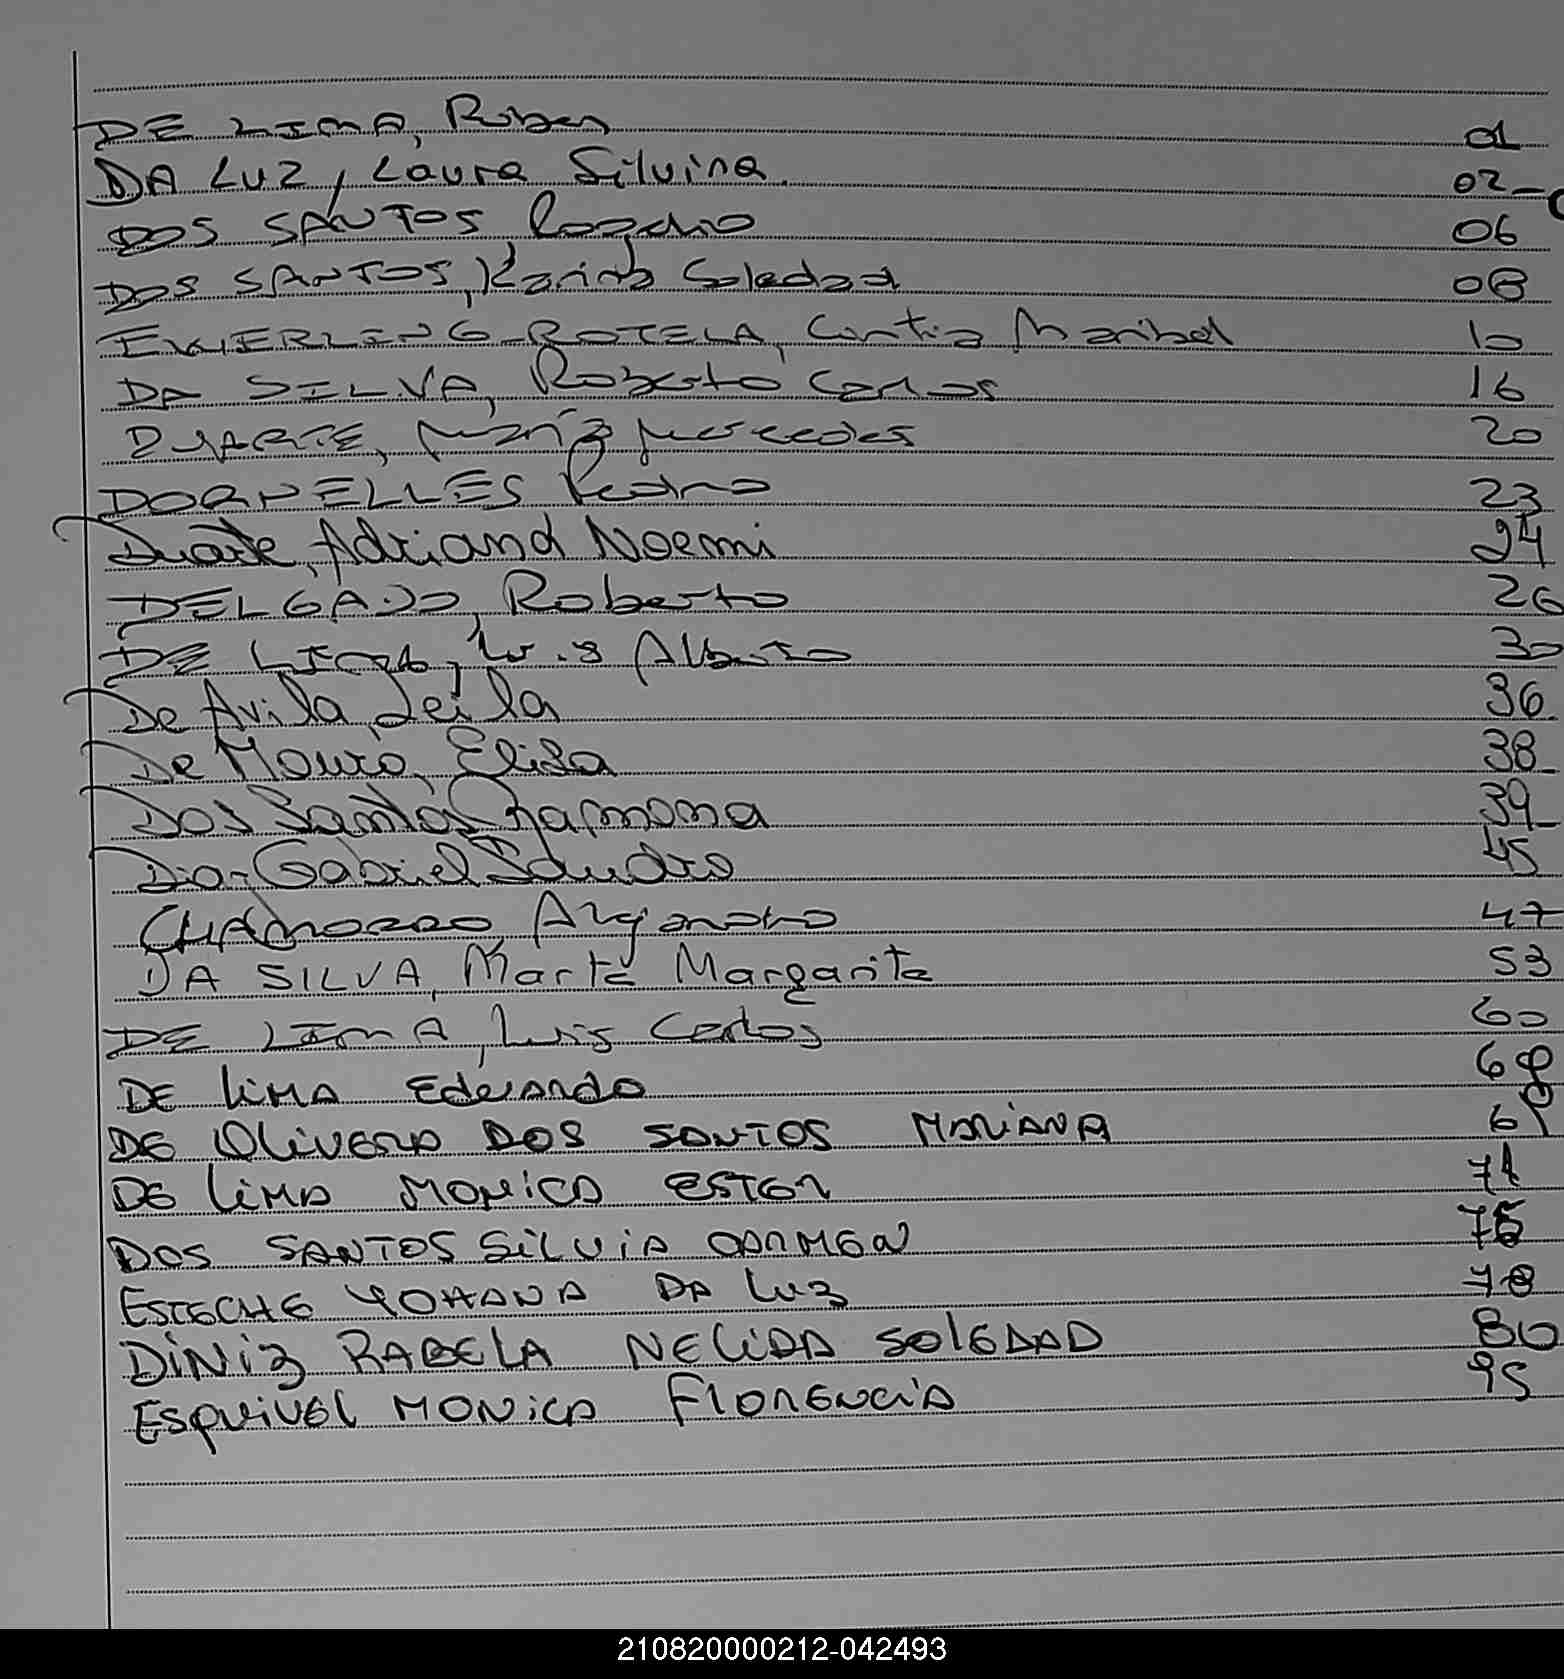 DE LIMA, Ruben 01
DA LUZ, Laura Silvina. 02
DOS SANTOS, Rogelio 06
DOS SANTOS, Karina Soledad 08
ROTELA, Cintia Maribel 10
DA SILVA, Roberto Carlos 16
DUARTE, María Mercedes 20
DORNELLES Pedro 23
Duarte, Adriana Noemi 24
DELGADO, Roberto 26
DE LIMA, Luis Alberto 30
De Avila, Leila 36
De Mouro, Elisa 38
Dos Santos Ramona 39
Gabriel 45
CHAMORRO Alejandro 47
DA SILVA, Marta Margarita 53
DE LIMA, Luis Carlos 60
DE LIMA Eduardo
DE OLIVERA DOS SANTOS MARIANA
DE LIMA MONICA ESTER 71
DOS SANTOS SILVIA CARMEN
ESTECHE YOHANA DA LUZ 78
DINIZ RABELA NELIDA SOLEDAD 80
ESQUIVEL MONICA FLORENCIA 95
210820000212-042493